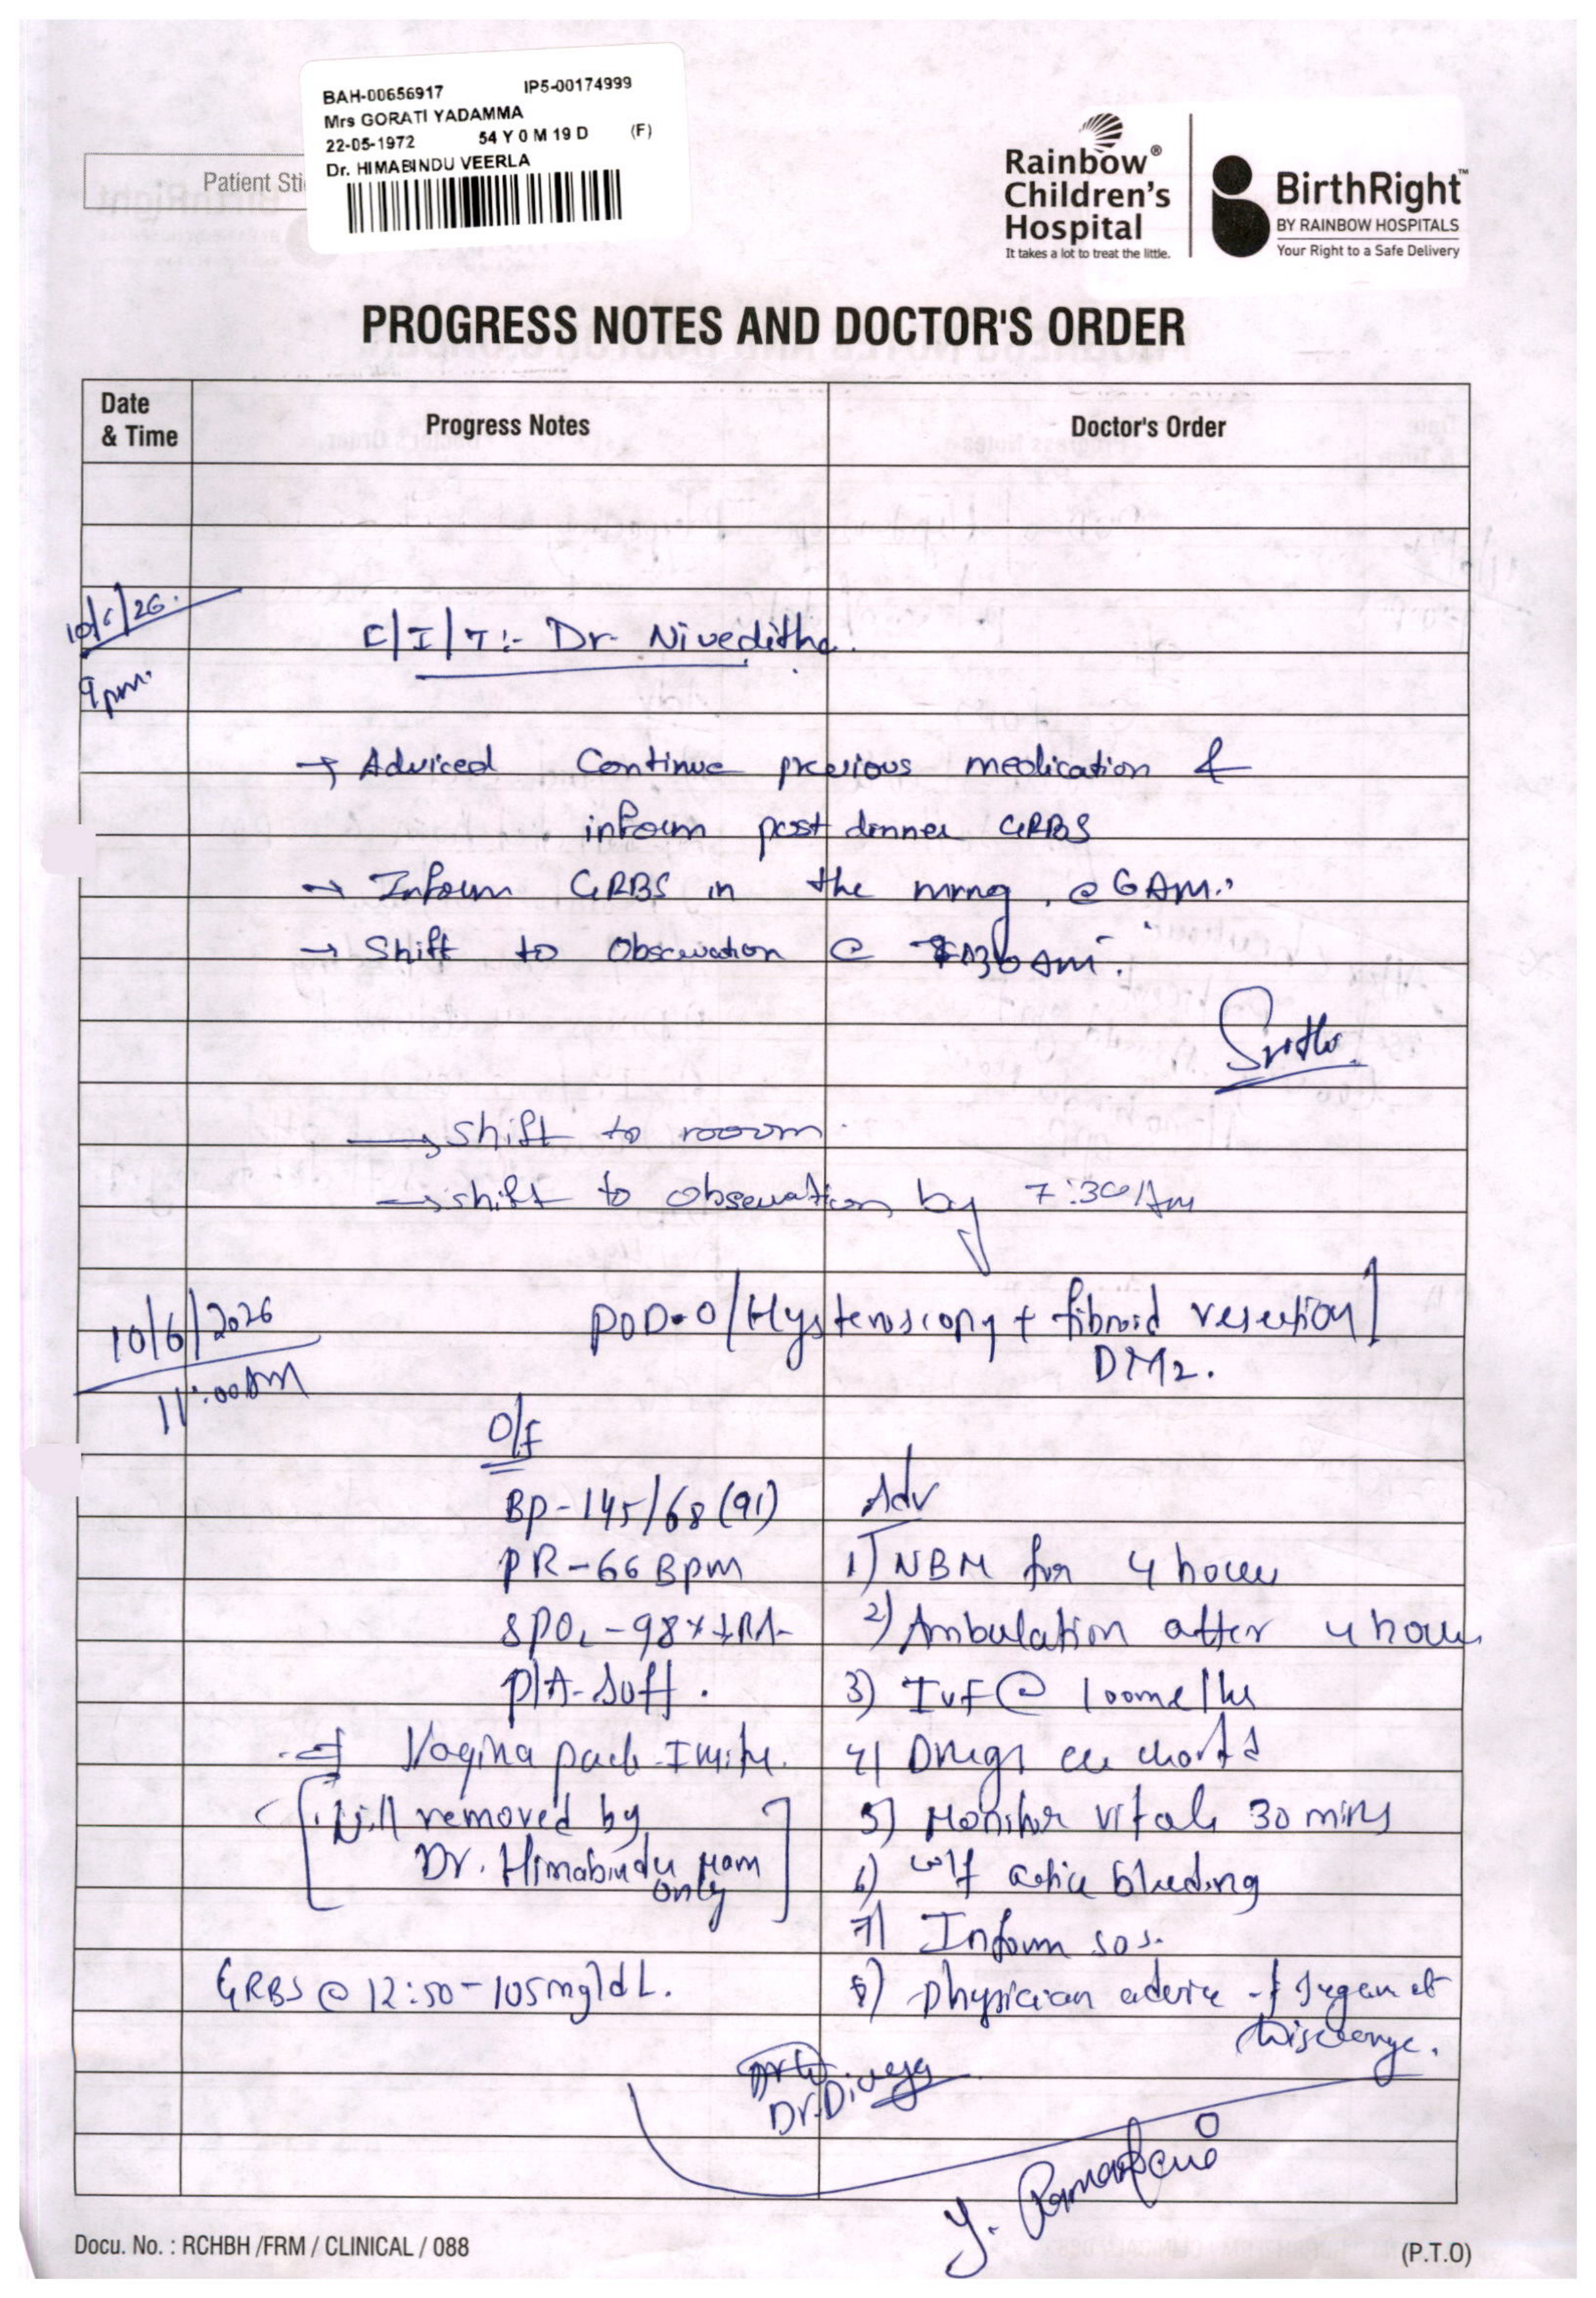 BAH-00656917 IP5-00174999
Mrs GORATI YADAMMA
22-05-1972 54 Y 0 M 19 D (F)
Dr. HIMABINDU VEERLA
Patient Sti
Rainbow®
Children's
Hospital
It takes a lot to treat the little.
BirthRight™
BY RAINBOW HOSPITALS
Your Right to a Safe Delivery
PROGRESS NOTES AND DOCTOR'S ORDER
Date & Time Progress Notes Doctor's Order
10/6/26.
9pm.
C/I/T:- Dr. Niveditha.
→ Adviced Continue previous medication &
inform post dinner GRBS
→ Inform GRBS in the mrng. @ 6 AM.
→ Shift to Observation @ 7:30 AM.
→ shift to room.
→ shift to observation by 7:30 AM
10/6/2026
11:00AM
POD-0/Hysteroscopy + fibroid resection/
DM2.
O/E
BP-145/68 (91) Adv
PR-66 Bpm 1) NBM for 4 hours
SPO2-98% RA 2) Ambulation after 4 hours
P/A-Soft. 3) IVF @ 100ml/hr
Vagina pack-Insitu. 4) Drugs as chart
Will removed by 5) Monitor vitals 30 mins
Dr. Himabindu Mam 6) w/f active bleeding
only
7) Inform sos.
GRBS @ 12:50-105mg/dL. 8) physician advice
Discharge.
Dr. Divya
Docu. No. : RCHBH /FRM / CLINICAL / 088 (P.T.O)